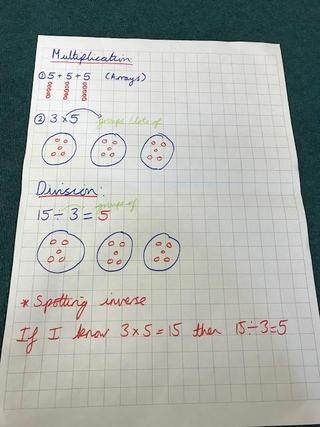 Multiplication:
① 5 + 5 + 5 (Arrays)
② 3 x 5 groups / lots of
Division:
groups of
15 ÷ 3 = 5
* Spotting inverse
If I know 3 x 5 = 15 then 15 ÷ 3 = 5